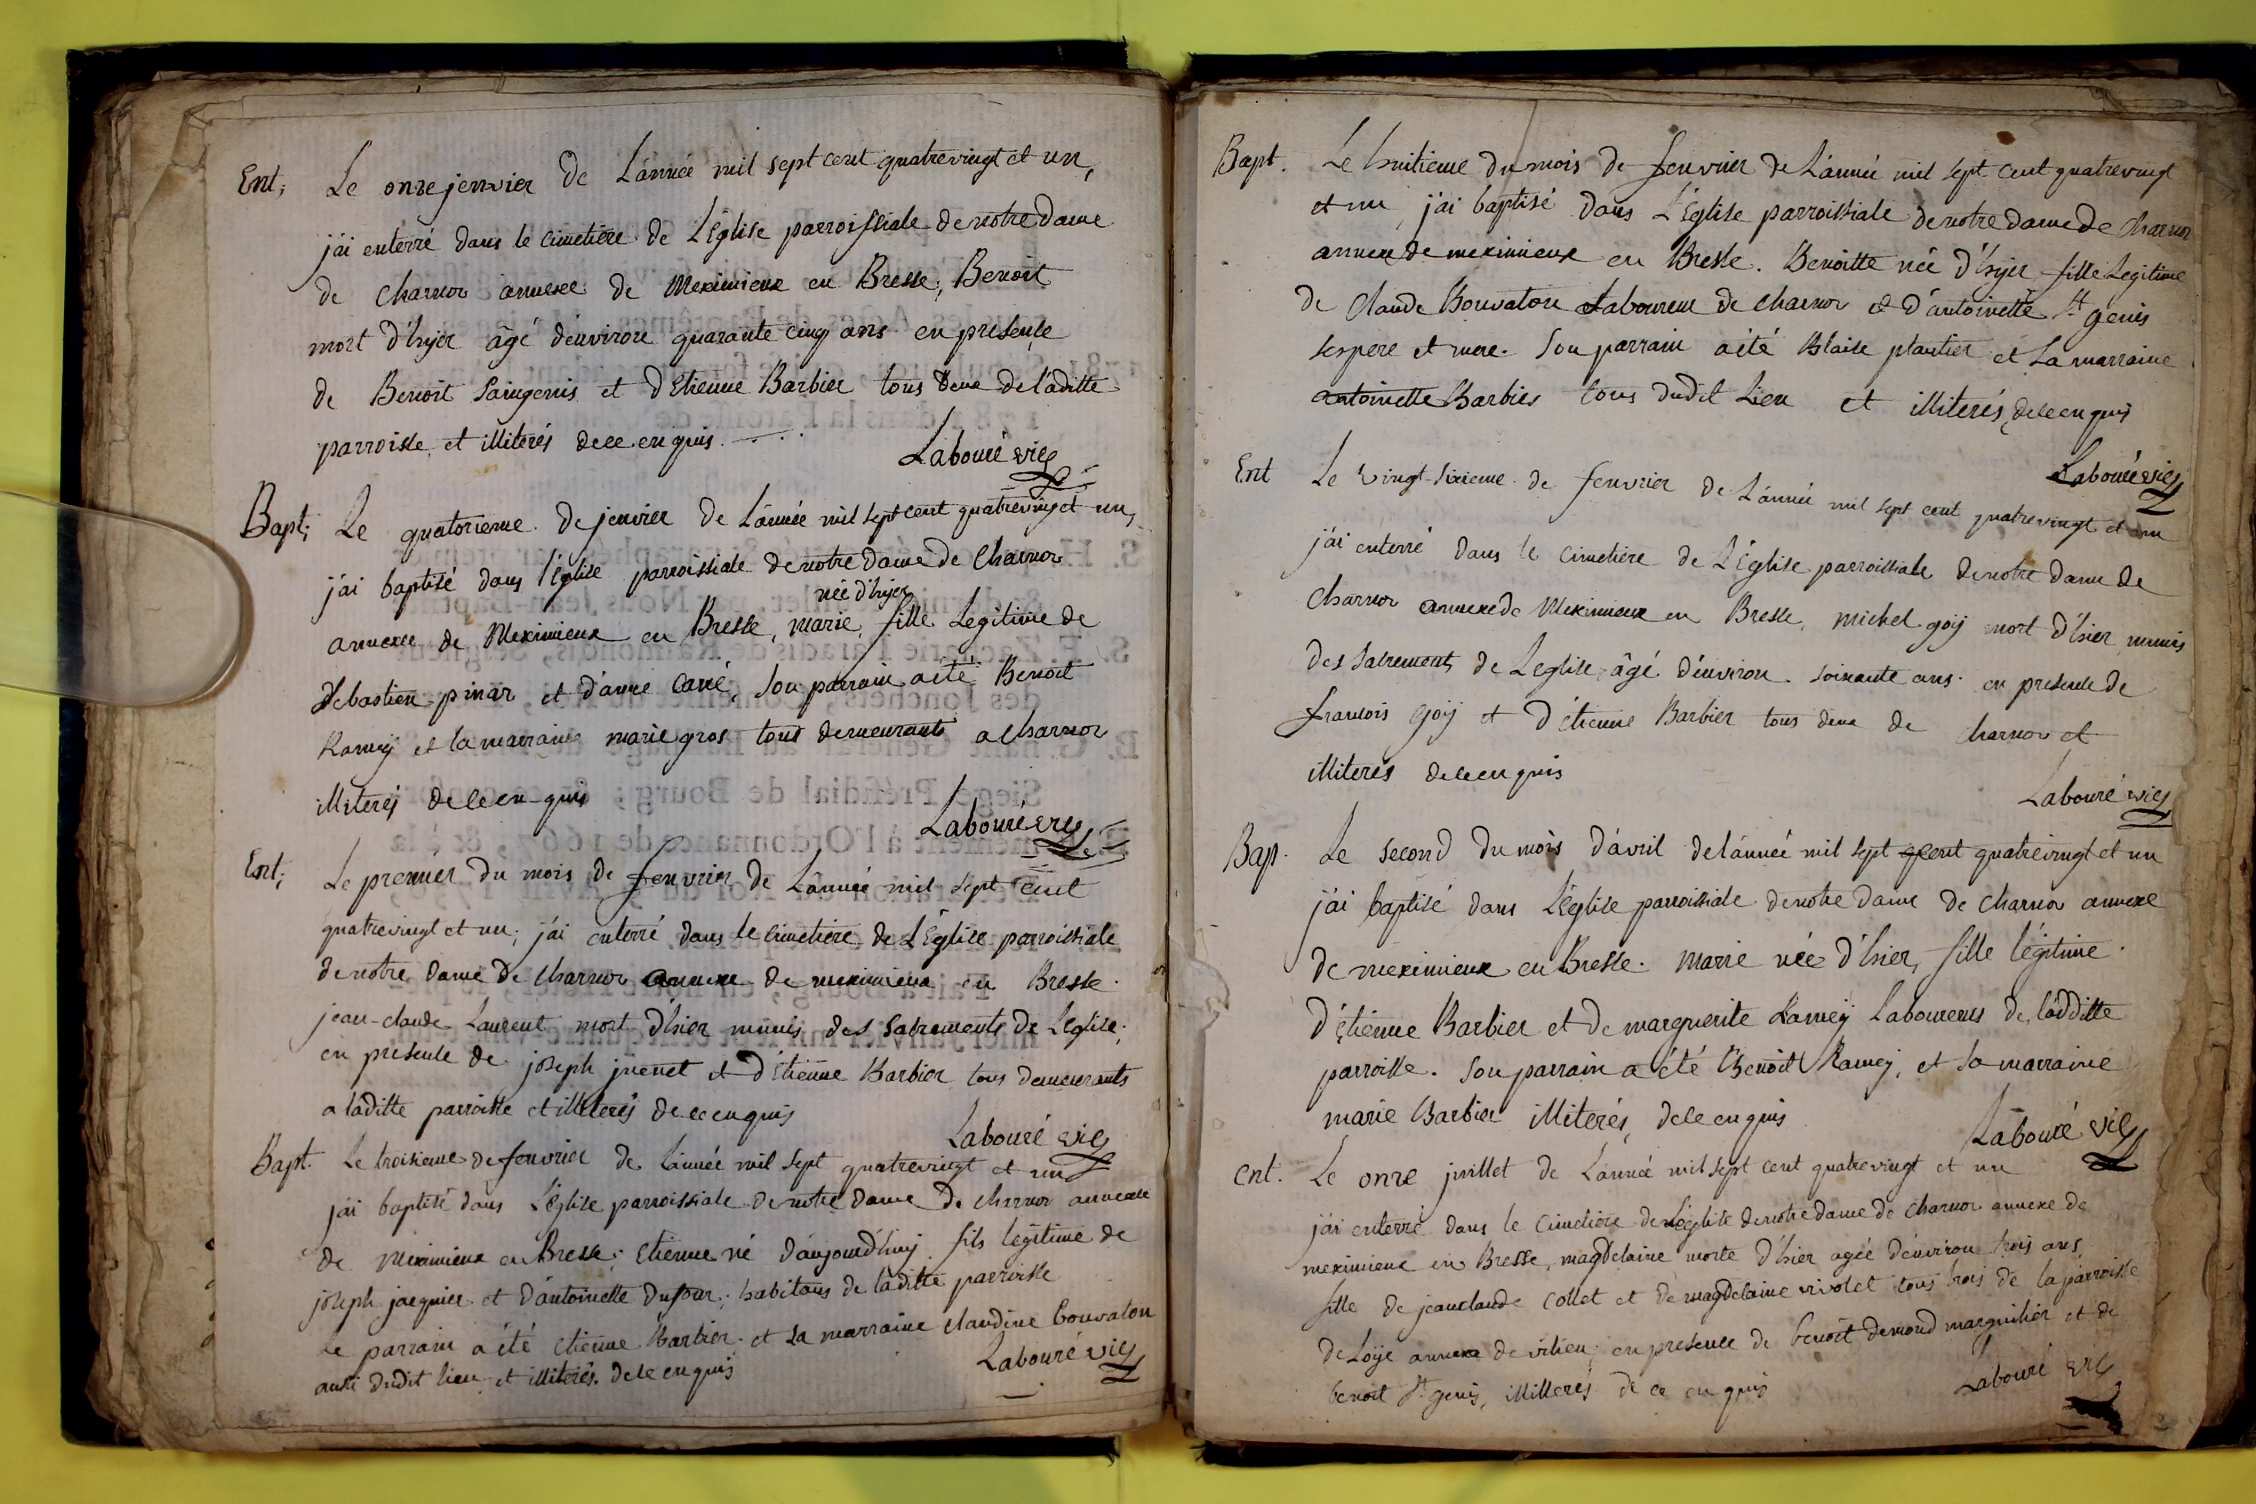 Ent; Le onze jenvier de L'année mil sept cent quatrevingt et un,
j'ai enterré dans le cimetière de L'Eglise parroissiale de notre dame
de Charnoz annexe de Meximieux en Bresse, Benoit
mort d'hyer âgé d'environ quarante cinq ans en presence
de Benoit Saingenis et d'Etienne Barbier tous deux de laditte
parroisse et illiterés de ce enquis.
Labouré vic
Bapt; Le quatorzieme de jenvier de L'année mil sept cent quatrevingt et un,
j'ai baptisé dans l'église parroissiale de notre dame de Charnoz
née d'hyer
annexe de Meximieux en Bresse, marie, fille Legitime de
Sebastien pinar et d'anne carré, son parrain a été Benoit
Ramey et la marraine marie gros tous demeurants a Charnoz
illiterés de ce enquis
Labouré vic
Ent; Le premier du mois de fenvrier de L'année mil sept cent
quatrevingt et un, j'ai enterré dans le cimetière de L'Eglise parroissiale
de notre dame de Charnoz annexe de meximieux en Bresse.
jean-claude Laurent mort d'hier munis des Sacrements de L'eglise,
en presence de joseph juenet et d'Etienne Barbier tous demeurants
a laditte parroisse et illiterés de ce enquis
Labouré vic
Bapt. Le troisieme de fenvrier de L'année mil sept quatrevingt et un
j'ai baptisé dans L'église parroissiale de notre dame de Charnoz annexe
de Meximieux en Bresse, etienne né d'aujourd'huy fils legitime de
joseph jaequier et d'antoinette Dufour, habitans de laditte parroisse
Le parrain a été etienne Barbier et La marraine claudine bouvaton
aussi dudit lieu et illiterés de ce enquis
Labouré vic
Bapt. Le huitieme du mois de fenvrier de L'année mil sept cent quatrevingt
et un j'ai baptisé dans L'Eglise parroissiale de notre dame de Charnoz
annexe de meximieux en Bresse. Benoitte née d'hyer fille Legitime
de Claude Bouvaton Laboureur de charnoz et d'antoinette St genis
ses pere et mere. Son parrain a été Blaise plantier et La marraine
antoinette Barbier tous dudit Lieu et illiterés de ce enquis
Labouré vic
Ent Le vingt-sixieme de fenvrier de L'année mil sept cent quatrevingt et un
j'ai enterré dans le cimetière de L'Eglise parroissiale de notre dame de
Charnoz annexe de Meximieux en Bresse, michel goij mort d'hier munis
des Sacrements de L'eglise, âgé d'environ soixante ans. en presence de
francois Goij et d'étienne Barbier tous deux de charnoz et
illiterés de ce enquis
Labouré vic
Bap. Le second du mois d'avril de l'année mil sept cent quatrevingt et un
j'ai baptisé dans L'église parroissiale de notre dame de charnoz annexe
de meximieux en Bresse. Marie née d'hier, fille légitime
d'Etienne Barbier et de marguerite Ramey Laboureurs de laditte
parroisse. Son parrain a été Benoit Ramey, et sa marraine
marie Barbier illiterés, de ce enquis
Labouré vic
Ent. Le onze juillet de L'année mil sept cent quatrevingt et un
j'ai enterré dans le cimetière de L'église de notre dame de charnoz annexe de
meximieux en Bresse, magdelaine morte d'hier agée d'environ trois ans,
fille de jean claude collet et de magdelaine vivolet tous trois de la parroisse
de Loije annexe de vilieu, en presence de benoit demond marguilier et de
benoit St genis, illiterés de ce enquis
Labouré vic